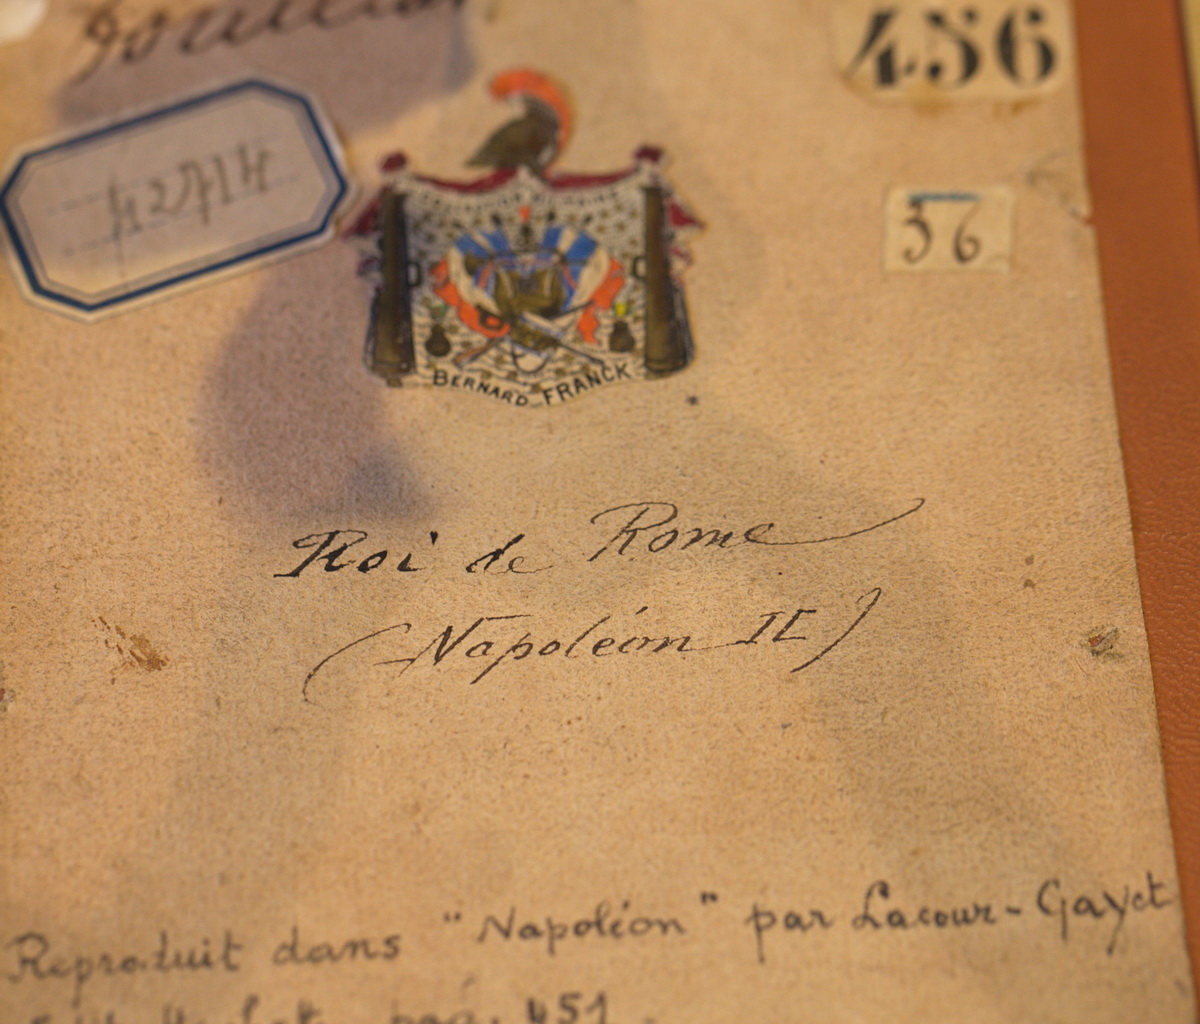 456
42714
36
BERNARD FRANCK
Roi de Rome
(Napoléon II)
Reproduit dans "Napoléon" par Lacour-Gayet
pag. 451